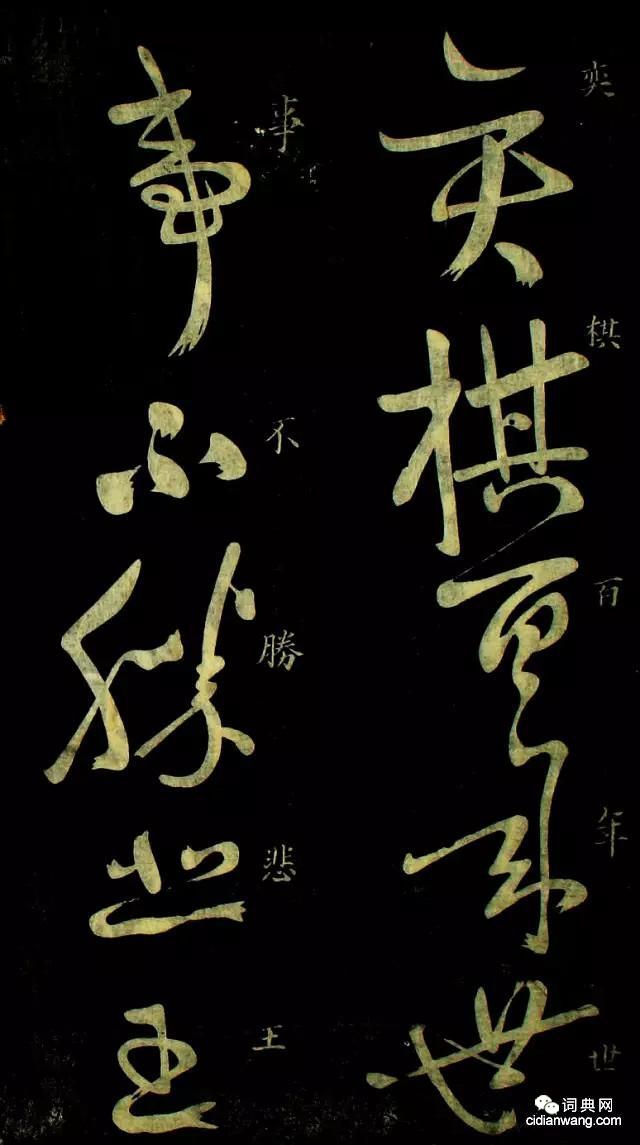 奕棋百年世
奕棋百年世
事不勝悲王
事不勝悲王
词典网
cidianwang.com